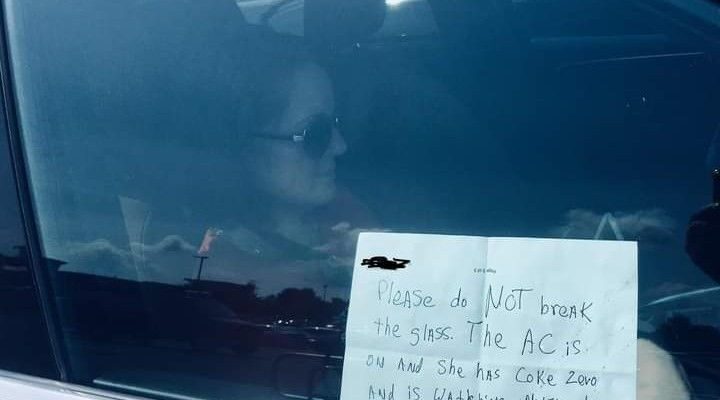 PleAse do NOT breAK
the glass. The AC is
ON AND She hAs Coke Zero
AND is